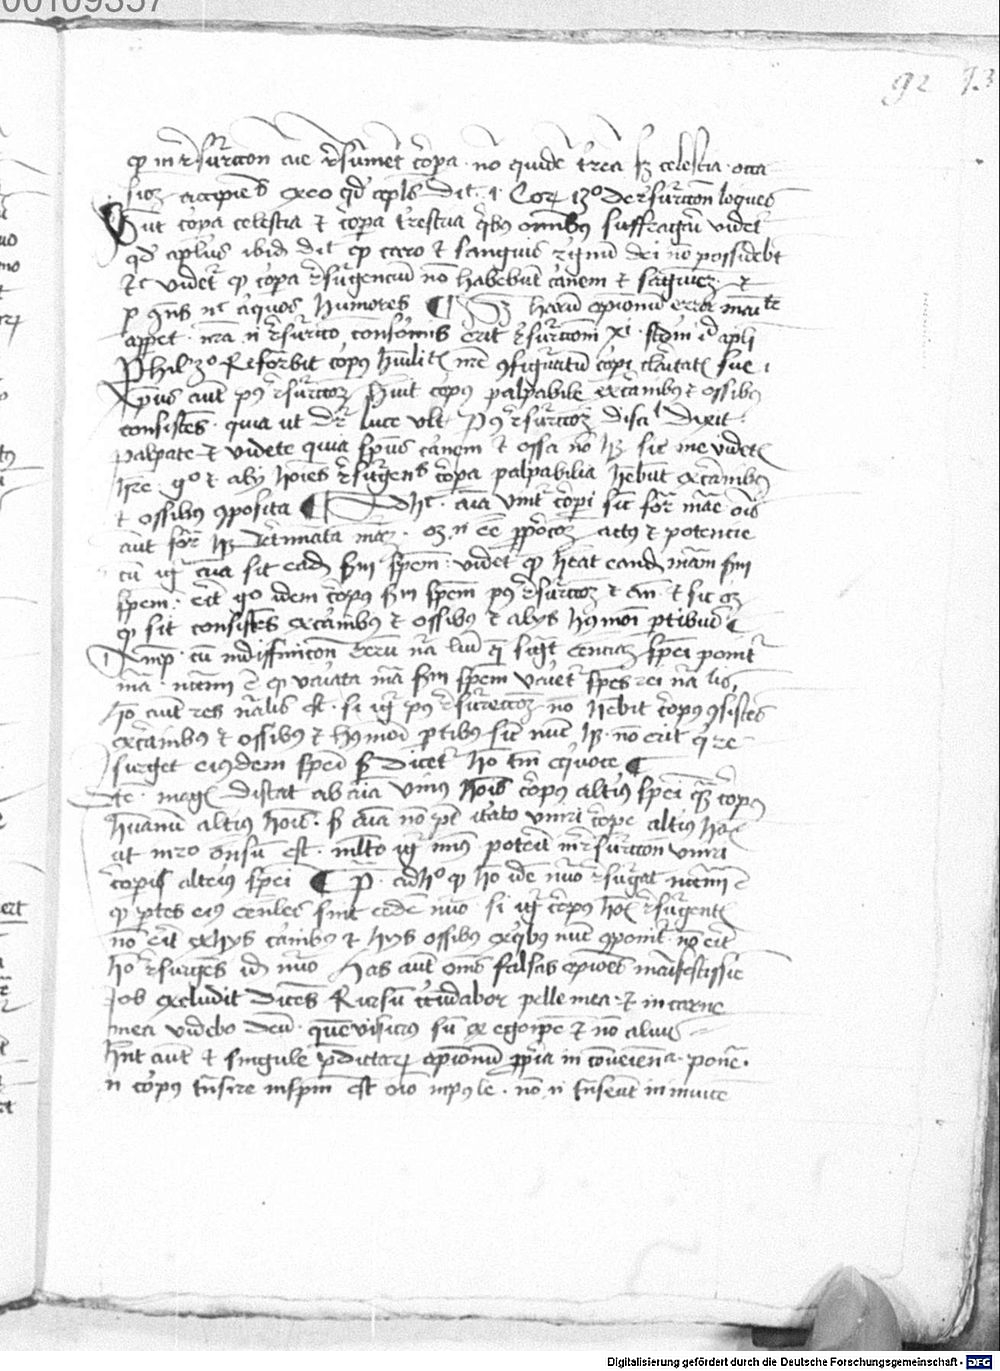 00109357
92 93
qp in resurrcon aie resumet corpa · no quide trea sz celestia · occa
sioz accipiets exeo qd apls dit · 1 Cor 15o de resurrcon loques
Sut corpa celestia et corpa trestria qbus omnibus suffragari videt
qd aplus ibid dit qp caro et sanguis regnu dei no possidebt
Et videtr qp corpa resurgenciu no habebunt carnem et sanguiez et
p qns nec aliquos humores ¶ Sz haru opionu error maifeste
apparet · nra n resurrco conformis erit resurrcoi xi · scdm id apli
Phil 3o Reformabit corpus humilit nre configuratu corpi claritatis sue
xpus aut post resurrcoz huit corpus palpabile ex carnibus et ossibus
consistes · quia ut dr luce ult post resurrcoz discil dixit
palpate et videte quia spus carnem et ossa no hz sic me videtis
hre · go et alij hoies resurgens corpa palpabilia hebut ex carnibus
et ossibus composita ¶ Adhc · aia unitr corpi sic for mae ois
aut for hz detrmiata maz · oz n ee pporcoz actus et potencie
cu igr aia sit eade sm spem · videtr qp heat eand mam sm
spem · erit go idem corpus sm spem post resurrcoz et an et sic oz
qp sit consistes ex carnibus et ossibus et alijs huiusmoi ptibus ¶
Amp · cu in diffinicon reru naliu qe signt essenciaz spei ponitr
ma · necm e qp variata ma sm spem varietr spes rei nalis,
ho aut res nalis est · si igr post resurreccoz no hebit corpus consistes
ex carnibus et ossibus et huiusmoi ptibus sic nuc hz · no erit q re
surget eiusdem spei sz dicetr ho tm equoce ¶
Ite · magis distat ab aia unius hois corpus altius spei qz corpus
humanu altius hois · sz aia no pt iterato uniri corpe altius hois
ut in 2o onsu est · multo igr minus poterit in resurrcon uniri
corpis altius spei ¶ P · ad ho qp ho ide nuo resurgat necm e
qp ptes eius eenles sint eede nuo si igr corpus hois resurgentis
no erit ex hijs carnibus et hijs ossibus ex qbus nuc componitr no erit
ho resurges ide nuo Has aut oms falsas opioes manifestissie
Job excludit dices Rursu circudabor pelle mea · et in carne
mea videbo deu · que visurus su ego ipse et no alius
Hnt aut et singule pdictaru opionu ppria in conveniencia · pone ·
n corpus transire in spm est oio inposle · no n transeut in invice
Digitalisierung gefördert durch die Deutsche Forschungsgemeinschaft - DFG